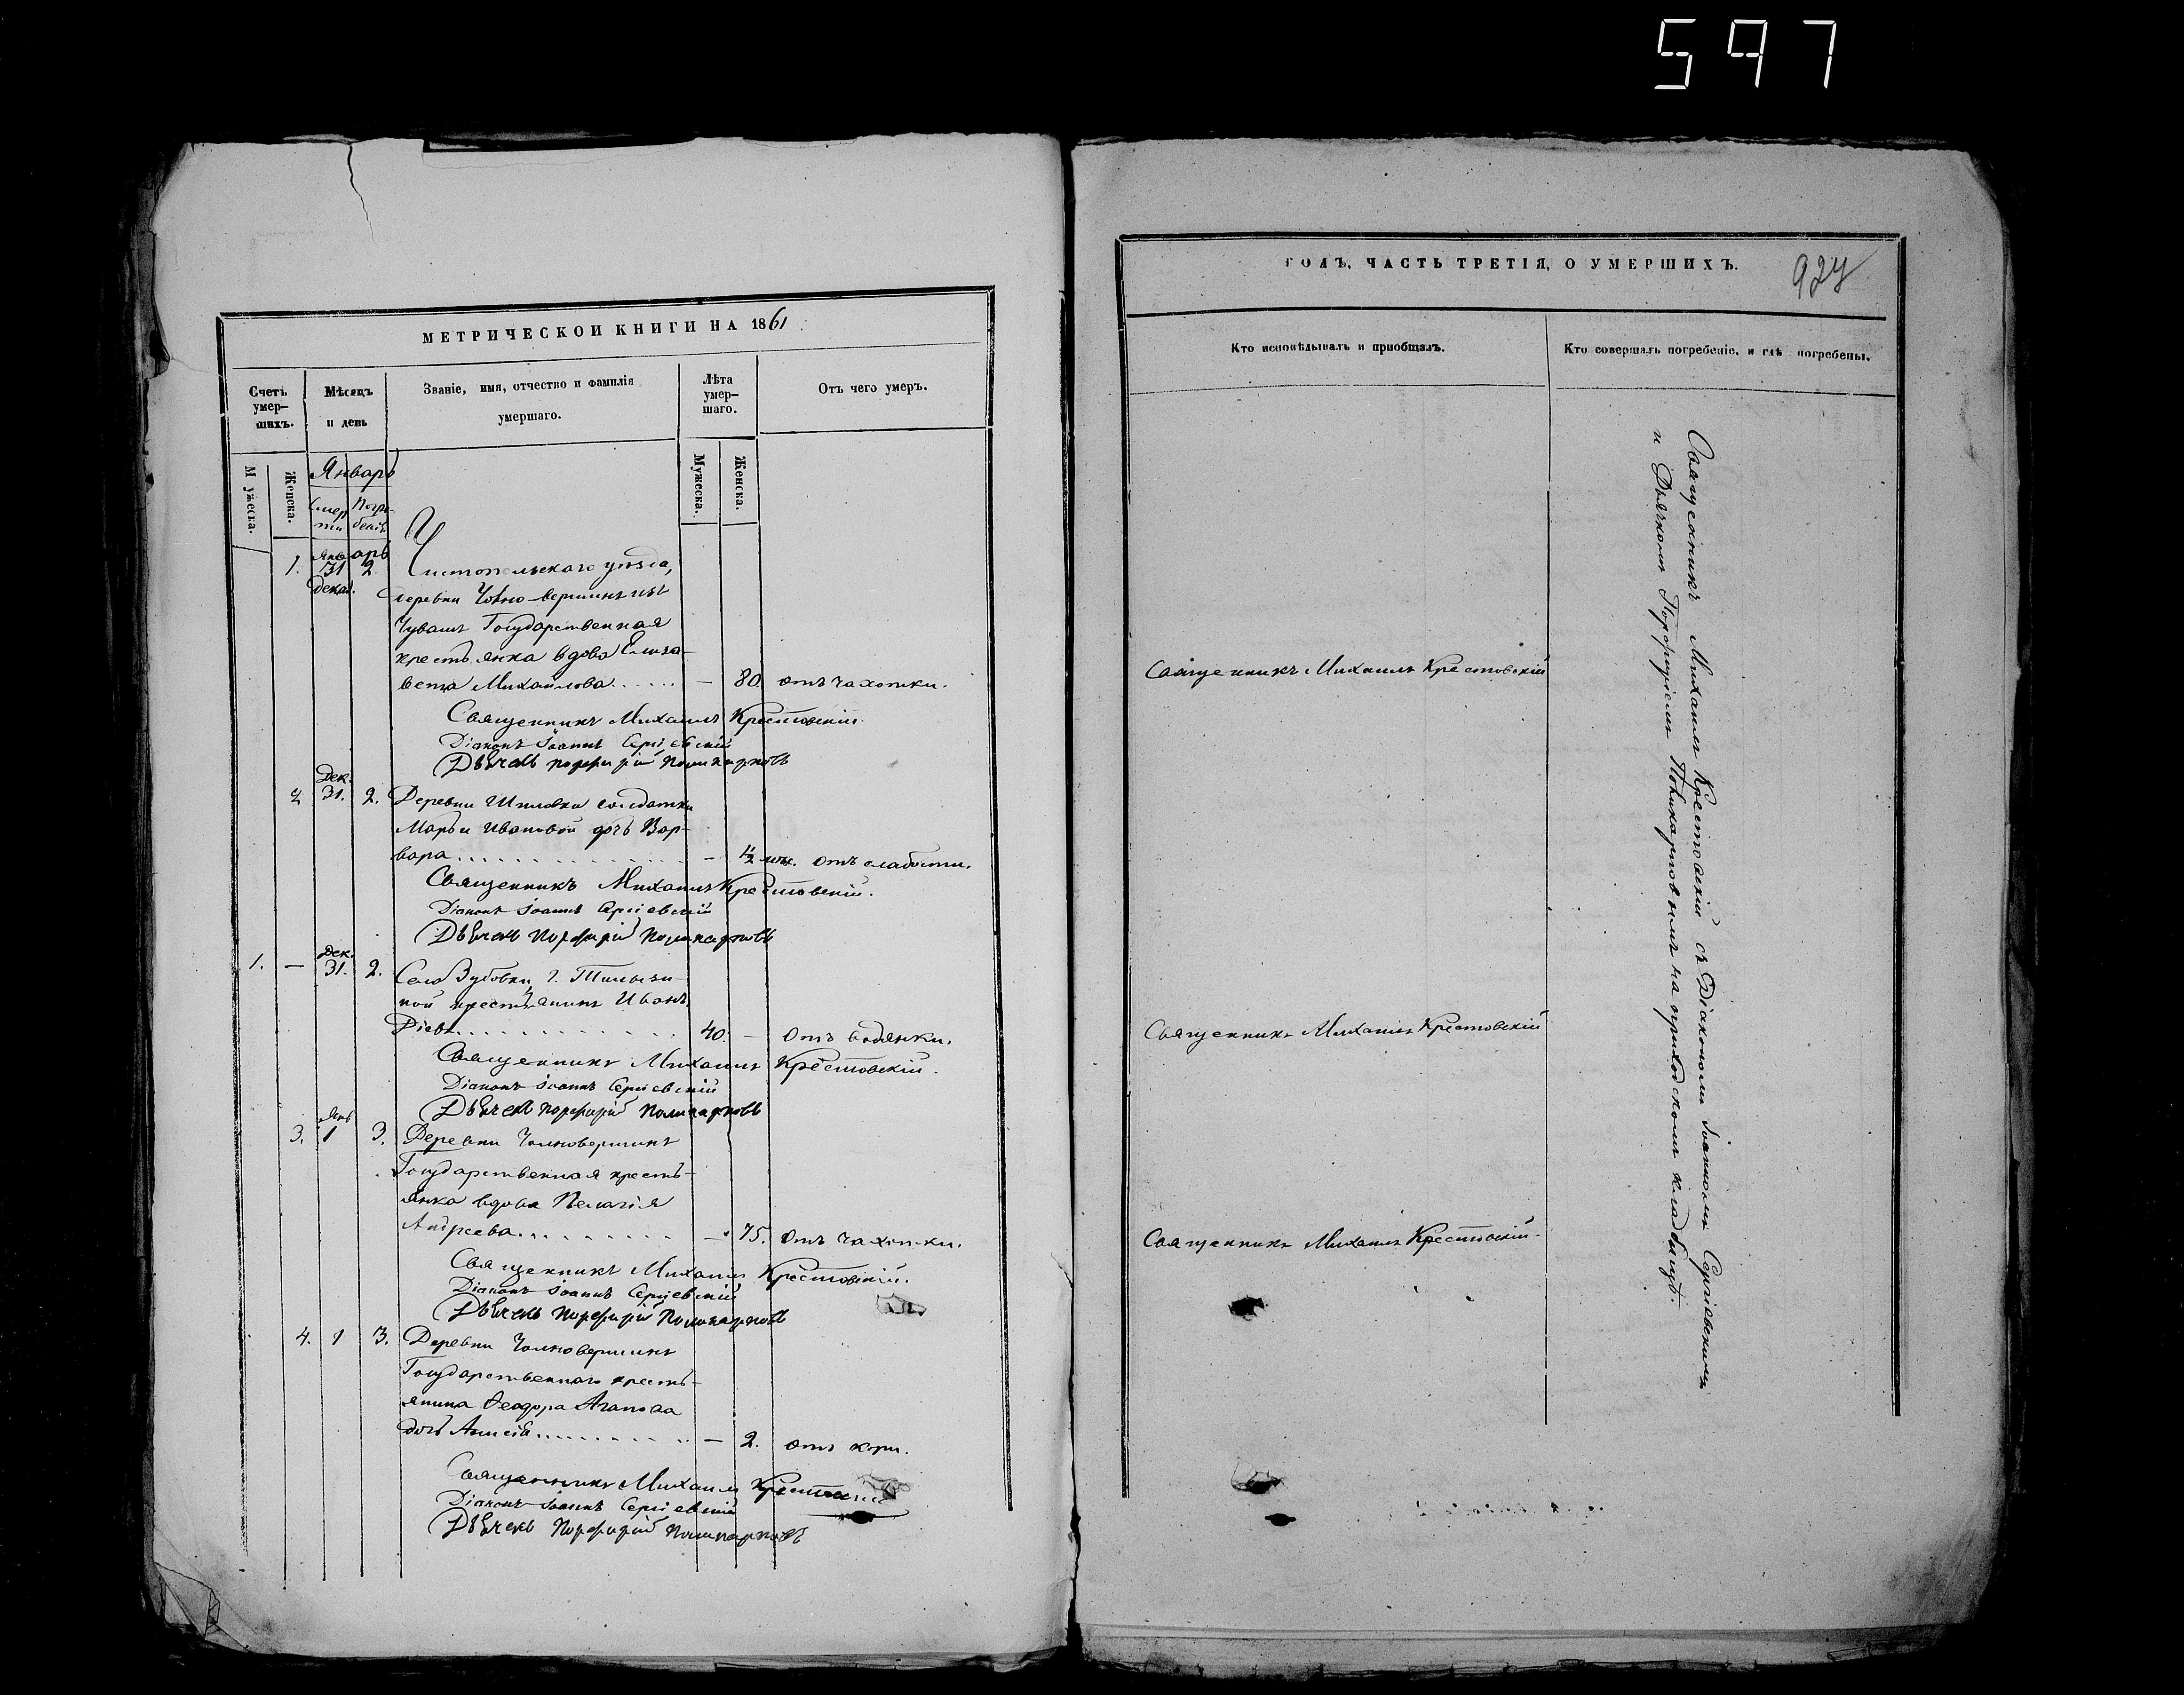 597
МЕТРИЧЕСКОЙ КНИГИ НА 1861
Счетъ умер-
шихъ.
Мѣсяцъ
и день
Званіе, имя, отчество и фамилія
умершаго.
Лѣта
умер-
шаго.
Отъ чего умеръ.
Мужеска.
Женска.
Январь
Смер
ти
Погре-
бенія.
Мужеска.
Женска.
1. Январь 31 2. Чистопольскаго уѣзда,
Декаб. деревни Чолно-Вершинъ изъ
Чувашъ Государственная
крестьянка вдова Елиза-
вета Михайлова...... — 80 отъ чахотки.
Священникъ Михаилъ Крестовскій.
Діаконъ Іоаннъ Сергіевскій
Дьячекъ Порфирій Поликарповъ
Дек.
2 31. 2. Деревни Шиловки солдатки
Марьи Ивановой дочь Вар-
вара.............. — ½ мѣс. отъ слабости.
Священникъ Михаилъ Крестовскій.
Діаконъ Іоаннъ Сергіевскій
Дьячекъ Порфирій Поликарповъ
Дек.
1. — 31. 2. Села Зубовки,
крестьянинъ Иванъ
............. 40. — отъ водянки.
Священникъ Михаилъ Крестовскій.
Діаконъ Іоаннъ Сергіевскій
Дьячекъ Порфирій Поликарповъ
Янв
3. 1 3. Деревни Чолновершинъ
Государственная кресть-
янка вдова Пелагія
Андреева.......... — 75. отъ чахотки.
Священникъ Михаилъ Крестовскій.
Діаконъ Іоаннъ Сергіевскій
Дьячекъ Порфирій Поликарповъ
4. 1 3. Деревни Чолновершинъ
Государственнаго кресть-
янина Ѳеодора Агапова
дочь Анисія.......... — 2. отъ кори.
Священникъ Михаилъ Крестовскій
Діаконъ Іоаннъ Сергіевскій
Дьячекъ Порфирій Поликарповъ
ГОДЪ, ЧАСТЬ ТРЕТІЯ, О УМЕРШИХЪ.
927
Кто исповѣдывалъ и пріобщалъ.
Кто совершалъ погребеніе, и гдѣ погребены.
Священникъ Михаилъ Крестовскій
Священникъ Михаилъ Крестовскій
Священникъ Михаилъ Крестовскій
Священникъ Михаилъ Крестовскій съ Діакономъ Іоанномъ Сергіевскимъ
и Дьячкомъ Порфиріемъ Поликарповымъ на приходскомъ кладбищѣ.